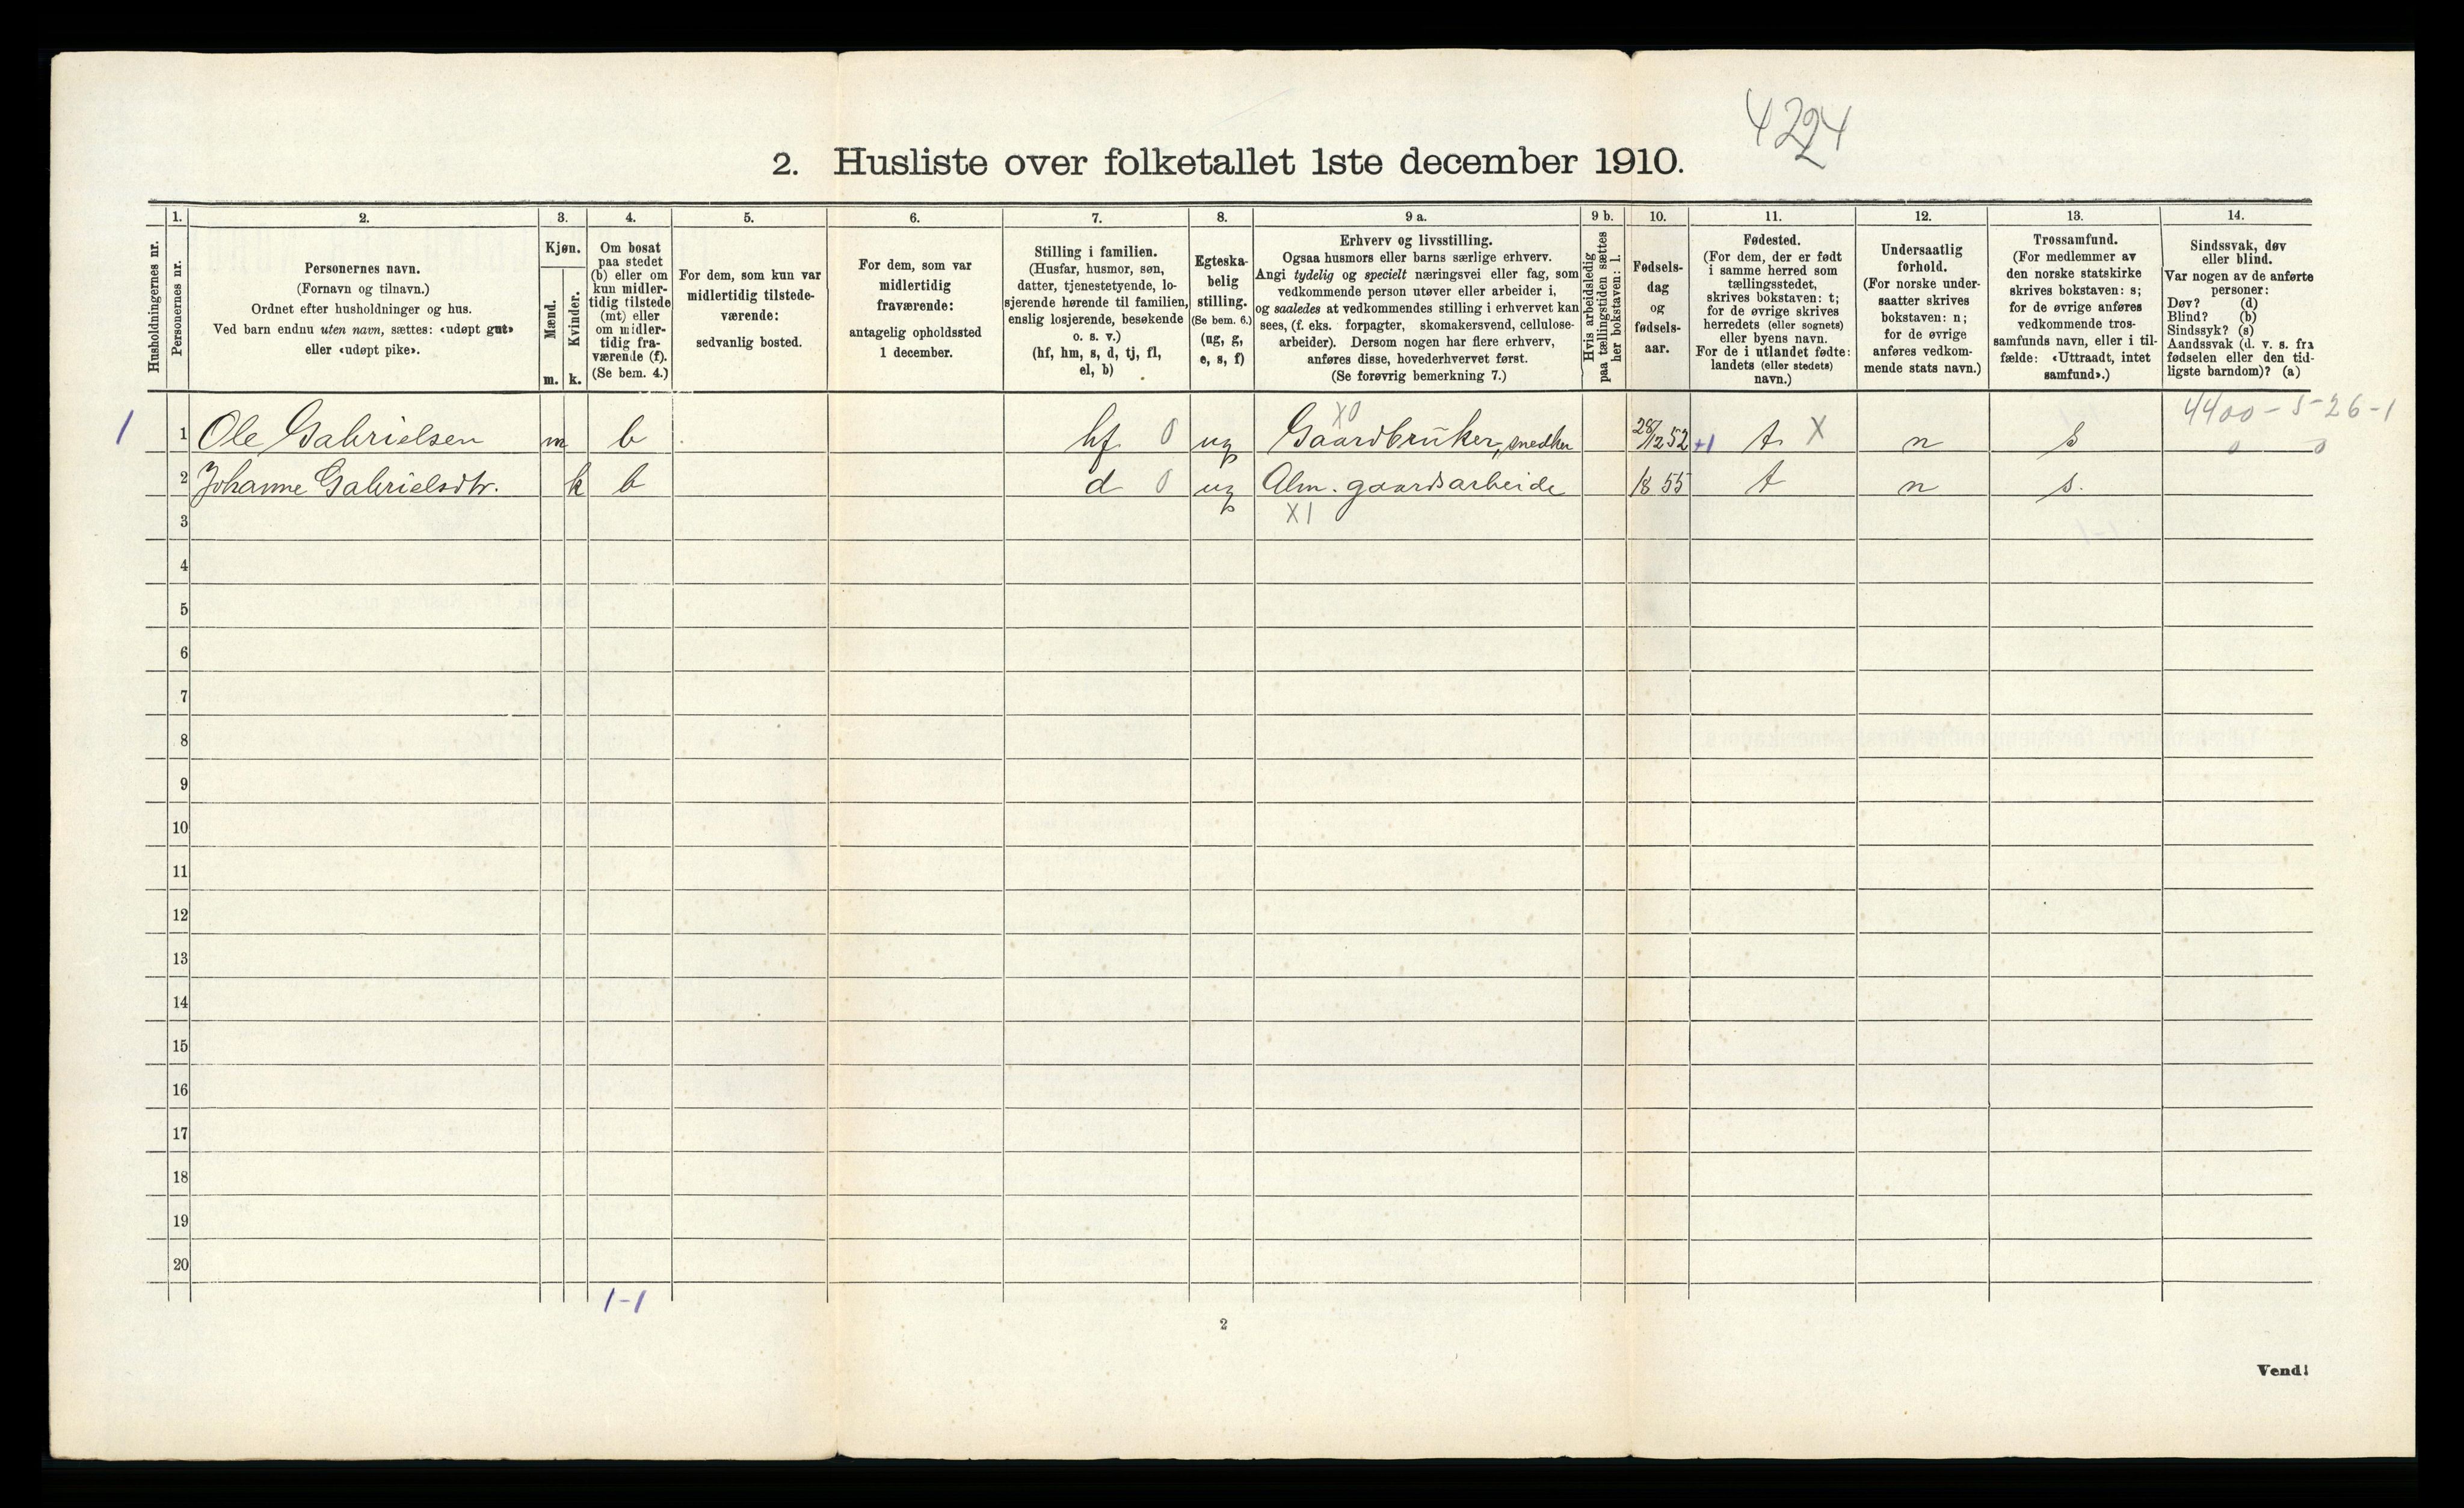 4224
2. Husliste over folketallet 1ste december 1910.
Husholdningernes nr.
1.
Personernes nr.
2.
Personernes navn.
(Fornavn og tilnavn.)
Ordnet efter husholdninger og hus.
Ved barn endnu uten navn, sættes: «udøpt gut»
eller «udøpt pike».
3.
Kjøn.
Mænd.
m.
Kvinder.
k.
4.
Om bosat
paa stedet
(b) eller om
kun midler-
tidig tilstede
(mt) eller
om midler-
tidig fra-
værende (f).
(Se bem. 4.)
5.
For dem, som kun var
midlertidig tilstede-
værende:
sedvanlig bosted.
6.
For dem, som var
midlertidig
fraværende:
antagelig opholdssted
1 december.
7.
Stilling i familien.
(Husfar, husmor, søn,
datter, tjenestetyende, lo-
sjerende hørende til familien,
enslig losjerende, besøkende
o. s. v.)
(hf, hm, s, d, tj, fl,
el, b)
8.
Egteska-
belig
stilling.
(Se bem. 6.)
(ug, g,
e, s, f)
9 a.
Erhverv og livsstilling.
Ogsaa husmors eller barns særlige erhverv.
Angi tydelig og specielt næringsvei eller fag, som
vedkommende person utøver eller arbeider i,
og saaledes at vedkommendes stilling i erhvervet kan
sees, (f. eks. forpagter, skomakersvend, cellulose-
arbeider). Dersom nogen har flere erhverv,
anføres disse, hovederhvervet først.
(Se forøvrig bemerkning 7.)
9 b.
Hvis arbeidsledig
paa tællingstiden sættes
her bokstaven: l.
10.
Fødsels-
dag
og
fødsels-
aar.
11.
Fødested.
(For dem, der er født
i samme herred som
tællingsstedet,
skrives bokstaven: t;
for de øvrige skrives
herredets (eller sognets)
eller byens navn.
For de i utlandet fødte:
landets (eller stedets)
navn.)
12.
Undersaatlig
forhold.
(For norske under-
saatter skrives
bokstaven: n;
for de øvrige
anføres vedkom-
mende stats navn.)
13.
Trossamfund.
(For medlemmer av
den norske statskirke
skrives bokstaven: s;
for de øvrige anføres
vedkommende tros-
samfunds navn, eller i til-
fælde: «Uttraadt, intet
samfund».)
14.
Sindssvak, døv
eller blind.
Var nogen av de anførte
personer:
Døv? (d)
Blind? (b)
Sindssyk? (s)
Aandssvak (d. v. s. fra
fødselen eller den tid-
ligste barndom)? (a)
X0 4400-5-26-1
1 1 Ole Gabrielsen m b hf 0 ug Gaardbruker, snedker 28/12 52 +1 t X n s 0 0
2 Johanne Gabrielsdtr. k b d 0 ug Alm. gaardsarbeide 18 55 t n s.
3 X1
4
5
6
7
8
9
10
11
12
13
14
15
16
17
18
19
20
1-1
2
Vend!